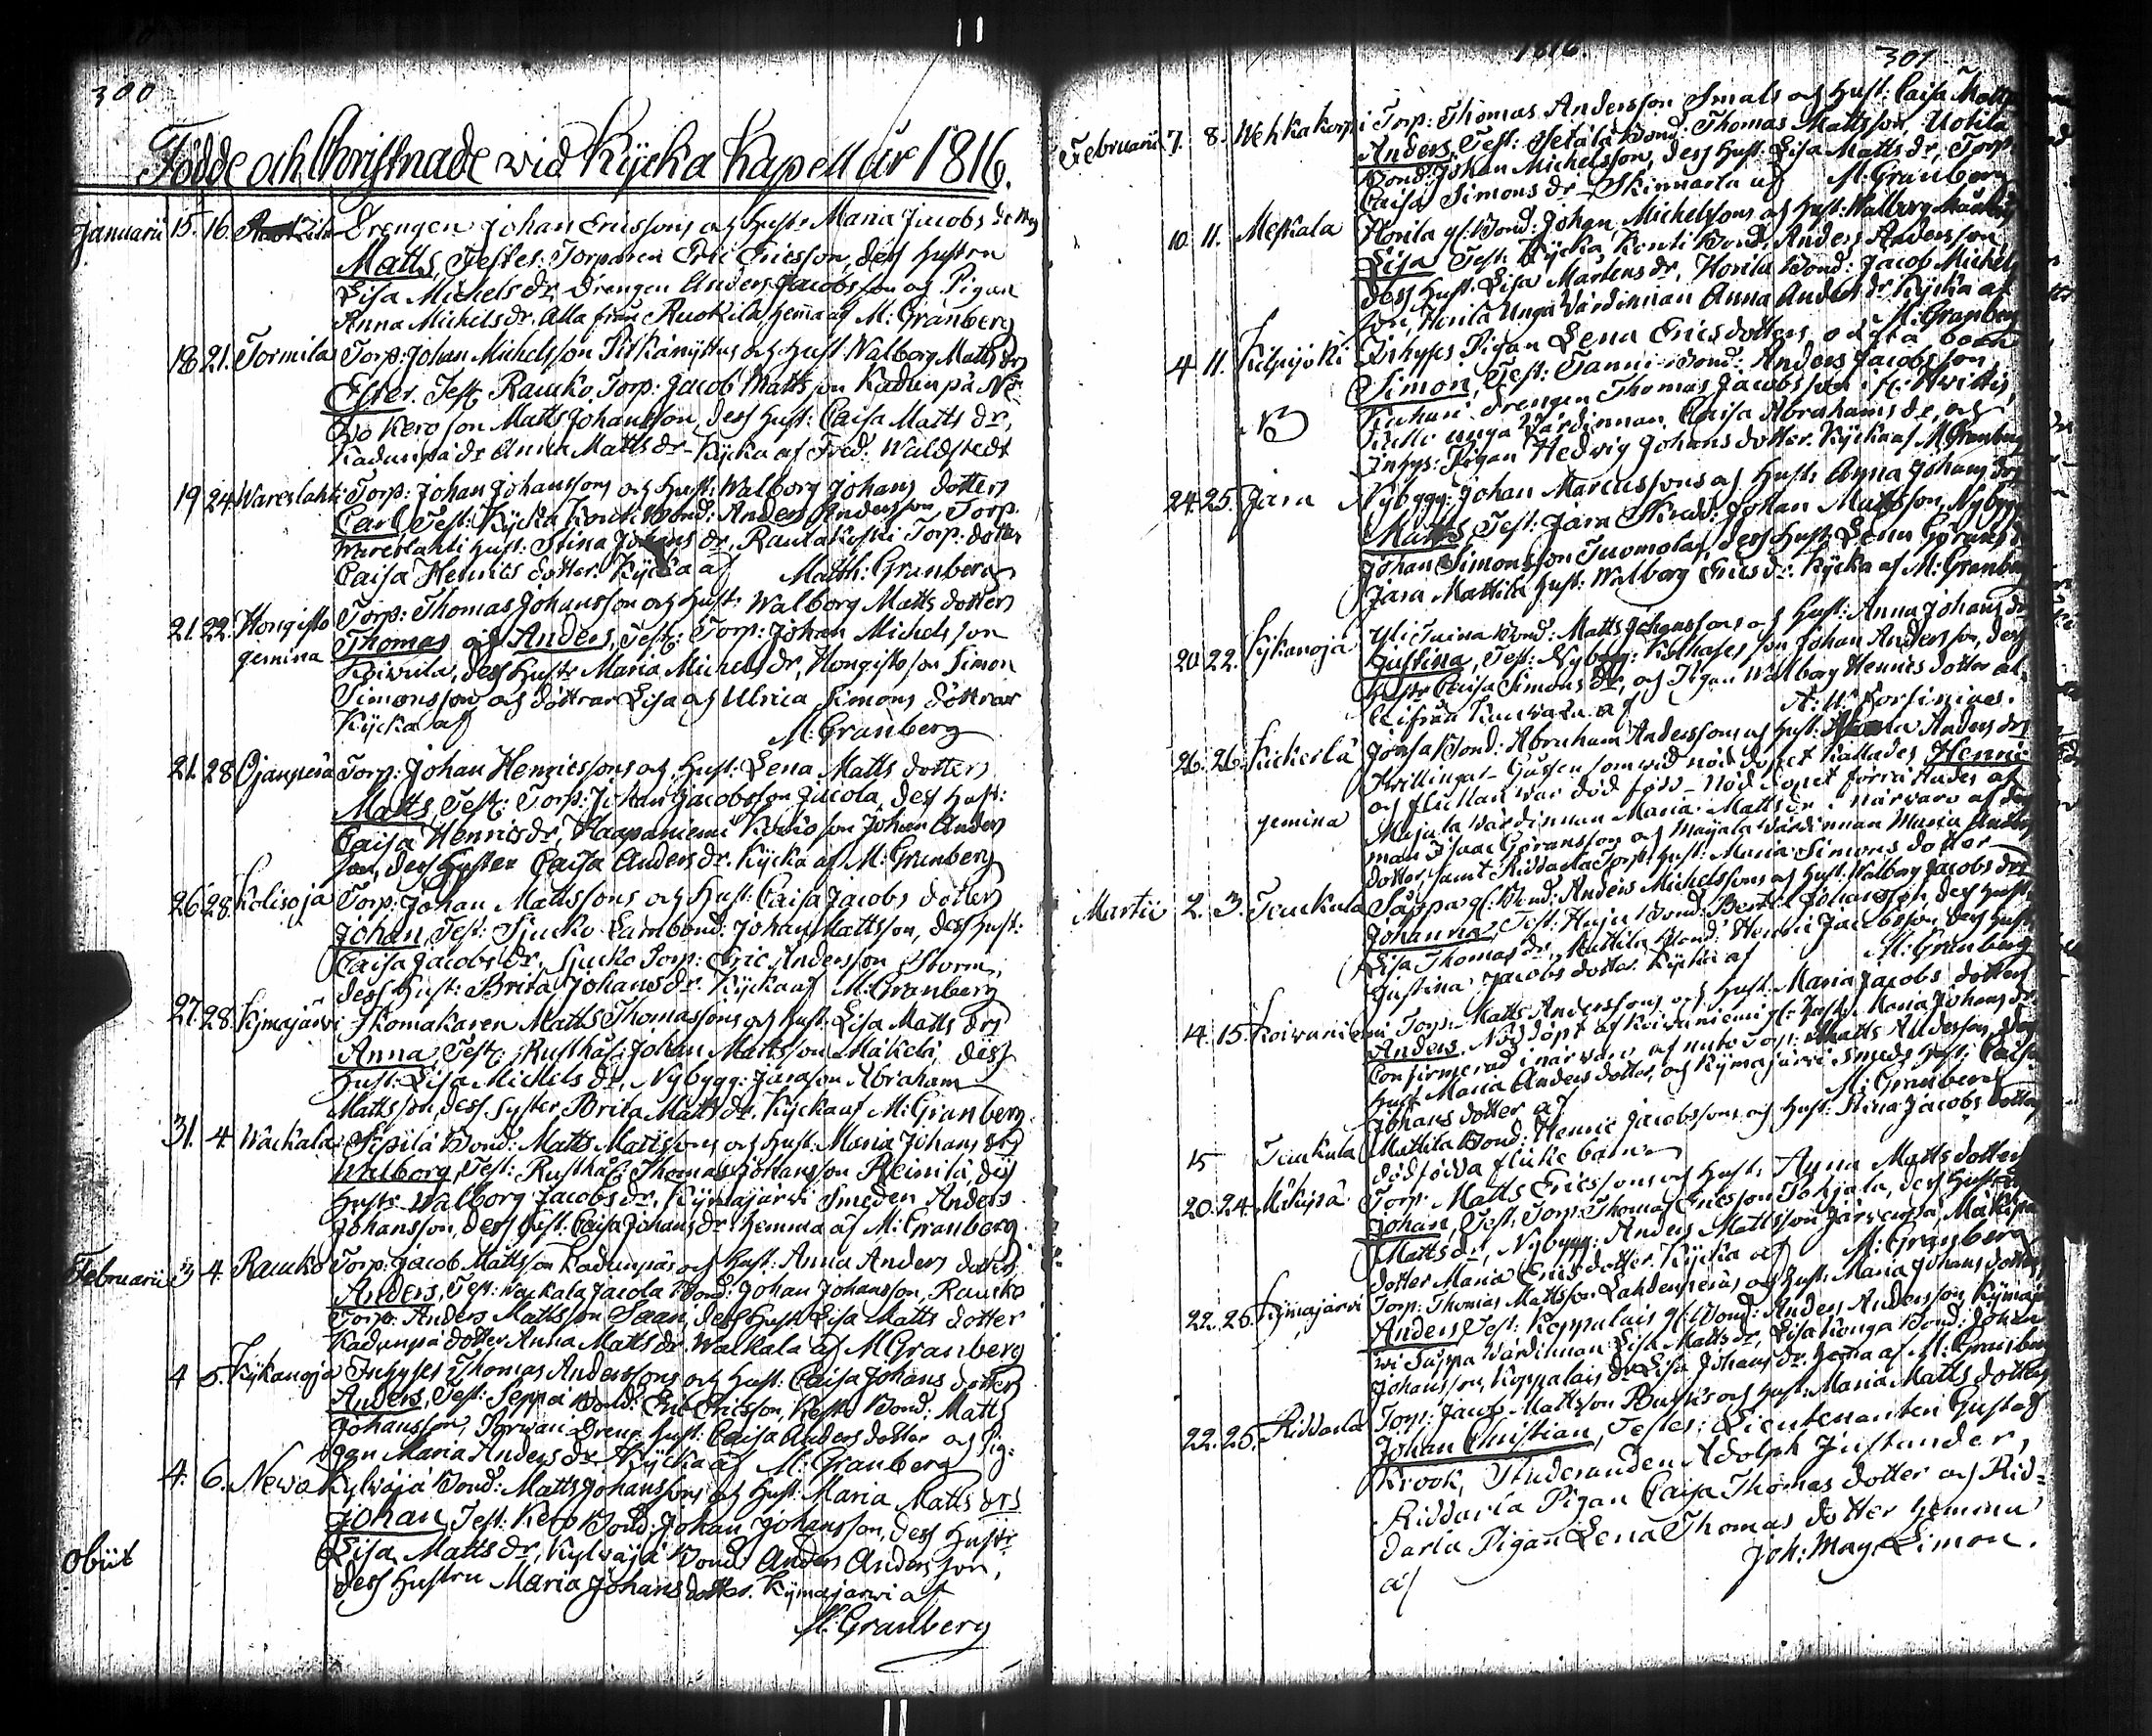 300
Födde och Christnade wid Kycka Kapell år 1816.
Januarii 15. 16. Drengen Johan Ericssons och Hustr: Maria Jacobs dotters
Matts, Testes: Torparen Eric Ericsson, dess hustru
Lisa Michels dr, Drengen Anders Jacobsson och Pigan
Anna Michels dr, alla från Ruokila, hema af M: Granberg
18 21. Tormila Torp: Johan Michelsson Pitkänyttus och Hust: Walborg Matts drs
Ester. Test: Raucko Torp: Jacob Mattsson Kadunpä
Kero son Matts Johansson, dess hust: Caisa Matts dr,
Kadunpä dr Anna Matts dr - Kycka af Fred. Waldstedt
19 24. Wareslahti Torp: Johan Johanssons och Hust: Walborg Johans dotters
Carl, Test: Kycka Bond: Anders Andersson, Torp.
Wareslahti hust: Stina Johans dr, Rautakoski Torp. dotter
Caisa Henrics dotter. Kycka af Matth: Granberg
21. 22. Hongisto Torp: Thomas Johansson och Hust: Walborg Matts dotters
gemina Thomas och Anders, Test: Torp: Johan Michelsson
Koiwula, dess Hustr Maria Michels dr, Hongisto son Simon
Simonsson och döttrar Lisa och Ulrica Simons döttrar
Kycka af M. Granberg
21. 28. Ojanperä Torp: Johan Henricssons och Hust: Lena Matts dotters
Matts, Test: Torp: Johan Jacobsson Jacola, dess Hust:
Caisa Henrics dr, Haapaniemi son Johan Anders
son, dess Syster Caisa Anders dr. Kycka af M: Granberg
26. 28. Kolisoja Torp: Johan Mattssons och Hust: Caisa Jacobs dotters
Johan, Test: Sjucko Bond: Johan Mattsson, dess hust:
Caisa Jacobs dr, Sjucko Torp: Eric Andersson Storm,
dess Hust: Brita Johans dr. Kycka af M: Granberg
27. 28. Kymajärvi Skomakaren Matts Thomassons och Hust: Lisa Matts drs
Anna, Test: Rusthål: Johan Mattsson Mäkelä, dess
Hust: Lisa Michels dr, Nybygg: Jära son Abraham
Mattsson, dess syster Brita Matts dr. Kycka af M: Granberg
31. 4. Wackala Sipilä Bond: Matts Mattssons och Hust: Maria Johans drs
Walborg, Test: Rusthål: Thomas Johansson Reinilä, dess
Hustr Walborg Jacobs dr, Kymajärwi Smeden Anders
Johansson, dess hust: Caisa Johans dr. hemma af M: Granberg
Februarii 3 4. Raucko Torp: Jacob Mattsson Kadunpäs och Hust: Anna Anders dotters
Anders, Test: Wackala Jacola Bond: Johan Johansson, Raucko
Torp: Anders Mattsson Saari, dess hust: Lisa Matts dotter
Kadunpä dotter Anna Matts dr. Walkala af M Granberg
4 5. Kykanoja Inhyses Thomas Anderssons och Hust: Caisa Johans dotters
Anders, Test: Seppä Bond: Eric Ericsson, Bond: Matts
Johansson, Dreng hust: Caisa Anders dotter och Pig:
gan Maria Anders dr Kycka af M: Granberg
4. 6. Newo Kylwäjä Bond: Matts Johanssons och Hust: Maria Matts drs
obiit Johan, Test: Kero Bond: Johan Johansson, dess Hustr
Lisa Matts dr, Kylwäjä Bond: Anders Andersson,
dess hustru Maria Johans dotter. Kymajärwi af
M: Granberg
1816. 301
Februarii 7. 8. Wehkakorpi Torp: Thomas Andersson Smals och Hust: Caisa Matts
Anders, Test: Bond: Thomas Mattsson, Uotila
Bond: Johan Michelsson, dess hust: Lisa Matts dr, Torp:
Caisa Simons dr Skinnarla af M: Granberg
10. 11. Meskala Horila Bond: Johan Michelssons och hust: Walborg
Lisa Test: Kycka Bond: Anders Andersson,
dess hust: Lisa Mårtens dr, Horila Bond: Jacob Michels
son, Horila Unga Wärdinnan Anna Anders dr Kycka af
M: Granberg
4. 11. Kilpijoki Inhyses Pigan Lena Erics dotters oägta barn
Simon, Test: Tanni Bond: Anders Jacobsson,
drengen Thomas Jacobsson
NB unga Wärdinnan Caisa Abrahams dr, och
Inhys: Pigan Hedwig Johans dotter. Kycka af M: Granberg
24. 25. Jära Nybygg: Johan Marcussons och Hust: Anna Johans drs
Matts, Test: Jära Johan Mattsson, Nybygg:
Johan Simonsson Tuomola, dess hust: Lena Görans dr
Jära Mattila hust: Walborg Erics dr. Kycka af M: Granberg
20. 22. Kykanoja Bond: Matts Johanssons och Hust: Anna Johans drs
Justina, Test: Nybygg: son Johan Andersson, dess
hustr Caisa Simons dr, och Pigan Walborg Henrics dotter al-
la ifrån af A: W: Forsinius.
26. 26. Kuckerlä Jonsa Bond: Abraham Anderssons och hust: Anders drs
Twillingar - Gossen som wid nöd dopet kallades Henric
gemina och flickan war död född - Nöd dopet förrättades af
Majala Wärdinnan Maria Matts dr i närwaro af
man Isaac Göransson och Majala Wärdinnan Maria
dotter, samt Riddarla Torp: hust: Maria Simons dotter
Martii 2. 3. Teuckula Säppä Bond: Anders Michelssons och hust: Walborg Jacobs drs
Johanna, Test: Bond: Bertil Johansson, dess hust:
Lisa Thomas dr, Mattila Bond: Henric Jacobsson, dess hust:
Justina Jacobs dotter. Kycka af M: Granberg
14. 15. Koiwuniemi Torp: Matts Anderssons och hust: Maria Jacobs dotters
Anders. Nöddöpt af Koiwuniemi hust: Maria Johans dr
Confirmerad i närwaro af Torp: Matts Andersson, dess
hust: Maria Anders dotter, och Kymajärwi Smeds hust: Caisa
Johans dotter af M: Granberg
15 Teuckula Mattila Bond: Henric Jacobssons och hust: Stina Jacobs dotters
dödfödda flicke barn
20. 24. Mäkipä Torp Matts Ericssons och hust: Anna Matts dotters
Johan, Test: Torp: Thomas Ericsson Pohjala, dess hust:
Matts dr, Nybygg: Anders Mattsson Järwenpä, Mäkipä
dotter Maria Erics dotter. Kycka af M: Granberg
22. 25. Kymajärwi Torp: Thomas Mattsson Lahdenperäs och hust: Maria Johans dotters
Anders, Test: Koppalais Bond: Anders Andersson, Kymajär
wi Säppä Wärdinnan Lisa Matts dr, Bond: Johan
Johansson, Koppalais dr Lisa Johans dr. hema af M: Granberg
22. 25. Riddarla Torp: Jacob Mattsson och hust: Maria Matts dotters
Johan Christian, Testes: Lieutenanten Gustaf
Krook, Studeranden Adolph Justander,
Riddarla Pigan Caisa Thomas dotter och Rid-
darla Pigan Lena Thomas dotter hemma
af Joh: Magn: Limon.